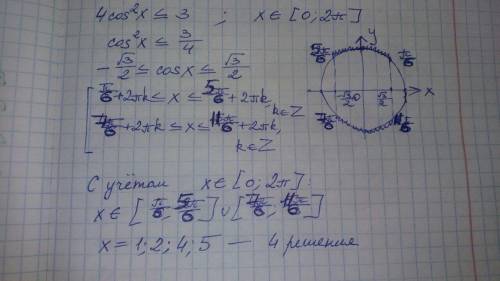 4cos²x ≤ 3 ; x ∈ [0; 2π]
cos²x ≤ 3/4
-√3/2 ≤ cosx ≤ √3/2
[ π/6 + 2πk ≤ x ≤ 5π/6 + 2πk, k∈Z
7π/6 + 2πk ≤ x ≤ 11π/6 + 2πk, k∈Z
y
5π/6 π/6
-√3/2 0 √3/2 x
7π/6 11π/6
С учётом x ∈ [0; 2π]:
x ∈ [π/6; 5π/6] ∪ [7π/6; 11π/6]
x = 1; 2; 4; 5 — 4 решения